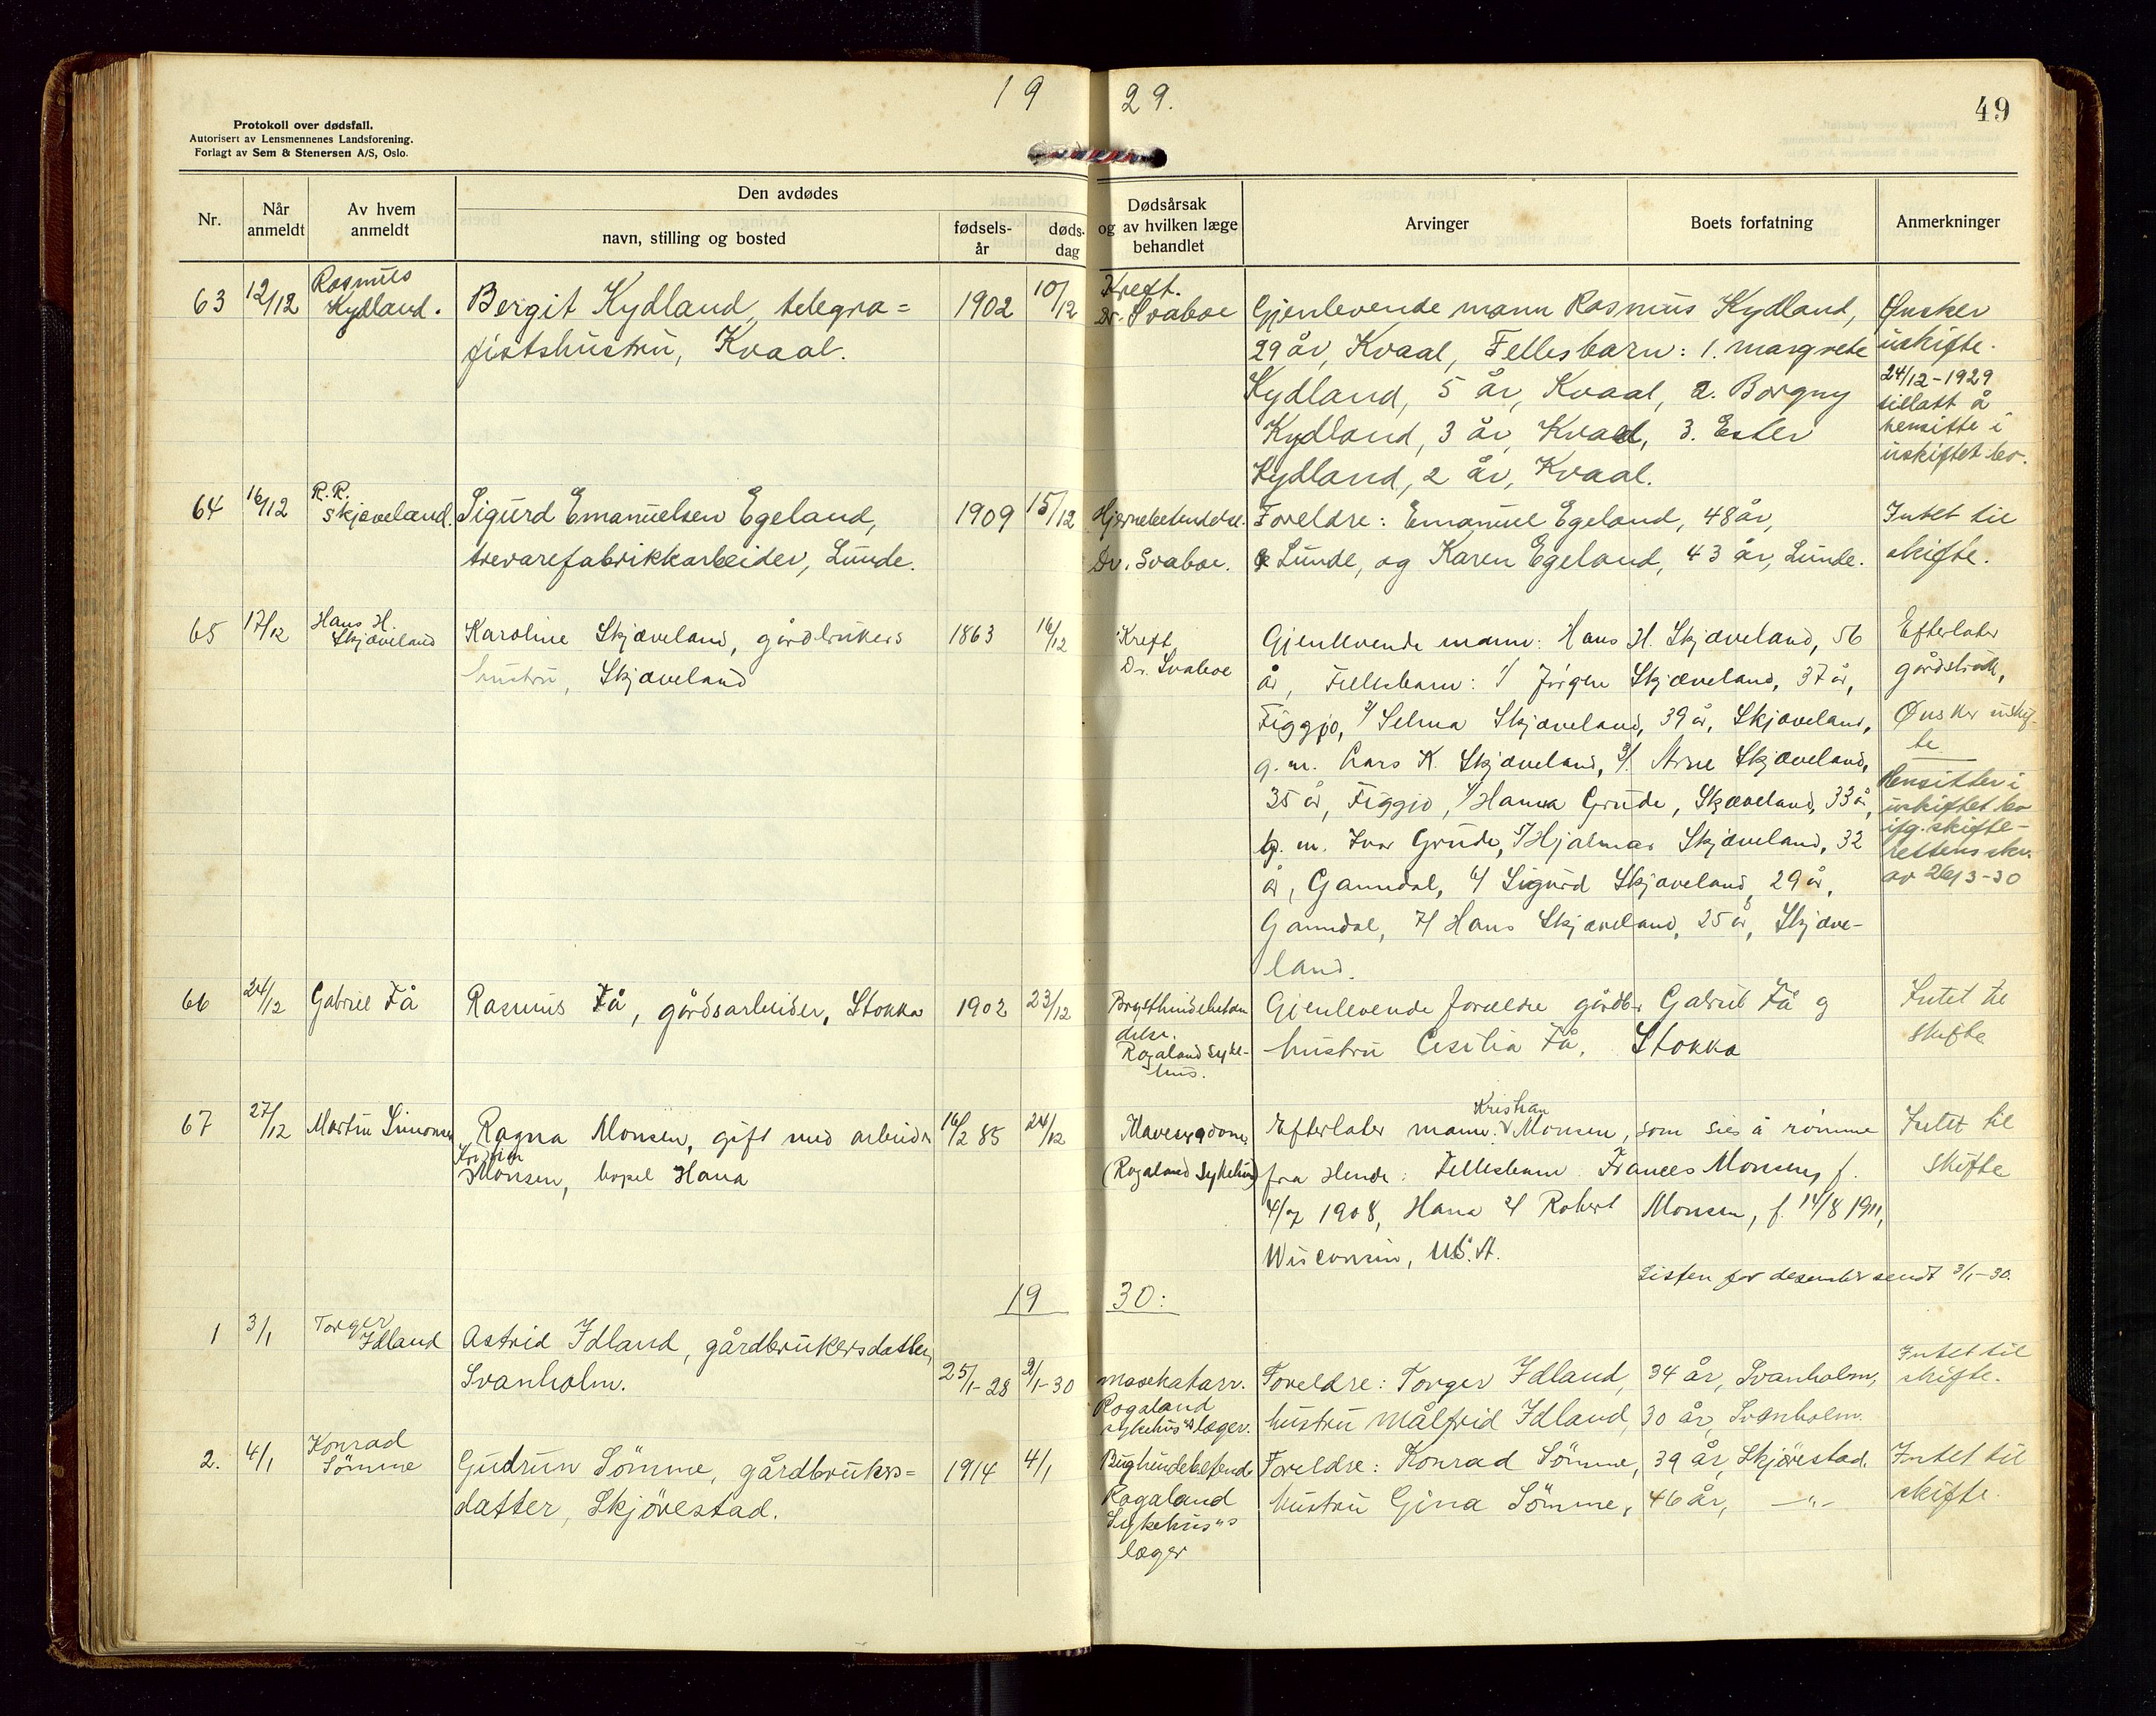 19 29.
49
Protokoll over dødsfall.
Autorisert av Lensmennenes Landsforening.
Forlagt av Sem & Stenersen A/S, Oslo.
Nr.
Når anmeldt
Av hvem anmeldt
Den avdødes
navn, stilling og bosted
fødsels-år
døds-dag
Dødsårsak og av hvilken læge behandlet
Arvinger
Boets forfatning
Anmerkninger
63 12/12 Rasmus Kydland.
Bergit Kydland, telegra=
fistshustru, Kvaal.
1902 10/12
Kreft.
Dr. Svaboe
Gjenlevende mann Rasmus Kydland,
29 år, Kvaal, Fellesbarn: 1. Margrete
Kydland, 5 år, Kvaal, 2. Borgny
Kydland, 3 år, Kvaal, 3. Ester
Kydland, 2 år, Kvaal.
Ønsker
uskifte.
24/12-1929
tillatt å
hensitte i
uskiftet bo.
64 16/12 R. R. Skjæveland.
Sigurd Emanuelsen Egeland,
trevarefabrikkarbeider, Lunde.
1909 15/12
Hjernebetendelse.
Dr. Svaboe.
Foreldre: Emanuel Egeland, 48 år,
Lunde, og Karen Egeland, 43 år, Lunde.
Intet til
skifte.
65 17/12 Hans H. Skjæveland
Karoline Skjæveland, gårdbrukers
hustru, Skjæveland
1863 16/12
Kreft
Dr. Svaboe
Gjenlevende mann: Hans H. Skjæveland, 56
år, Fellesbarn: 1/ Jørgen Skjæveland, 37 år,
Figgjo, 2/ Selma Skjæveland, 39 år, Skjæveland,
g. m. Lars K. Skjæveland, 3/. Arne Skjæveland,
35 år, Figgjo, 4/ Hanna Grude, Skjæveland, 33 år,
g. m. Ivar Grude, 5/ Hjalmar Skjæveland, 32
år, Ganndal, 6/ Sigurd Skjæveland, 29 år,
Ganndal, 7/ Hans Skjæveland, 25 år, Skjæve-
land.
Efterlater
gårdsbruk,
Ønsker uskif-
te.
Hensitter i
uskiftet bo
ifg. skifte-
rettens skr.
av 26/3-30
66 24/12 Gabriel Få
Rasmus Få, gårdsarbeider, Stokka
1902 23/12
Brysthindebetæn
delse.
Rogaland Syke-
hus.
Gjenlevende forældre gårdbr Gabriel Få og
hustru Cesilia Få, Stokka
Intet til
skifte
67 27/12 Martin Simonsen
Ragna Monsen, gift med arbeider
Kristian
Monsen, bopel Hana
16/2 85 24/12
Mavesygdom
(Rogaland Sykehus)
Kristian
Efterlater mann: Monsen, som sies å rømme
fra Hende: Fellesbarn Frances Monsen, f.
4/7 1908, Hana 2/ Robert Monsen, f. 14/8 1911,
Wisconsin, U.S.A.
Intet til
skifte
Listen for desember sendt 3/1-30.
19 30:
1 3/1 Torger Idland
Astrid Idland, gårdbrukersdatter,
Svanholm.
25/1-28 2/1-30
mavekatarr.
Rogaland
sykehus"s læger.
Foreldre: Torger Idland, 34 år, Svanholm,
hustru Målfrid Idland, 30 år, Svanholm.
Intet til
skifte.
2. 4/1 Konrad Sömme
Gudrun Sömme, gårdbruker=
datter, Skjörestad.
1914 4/1
Bughindebetend.
Rogaland
Sykehus"s
læger
Foreldre: Konrad Sömme, 39 år, Skjörestad.
hustru Gina Sömme, 46 år, —"—
Intet til
skifte.